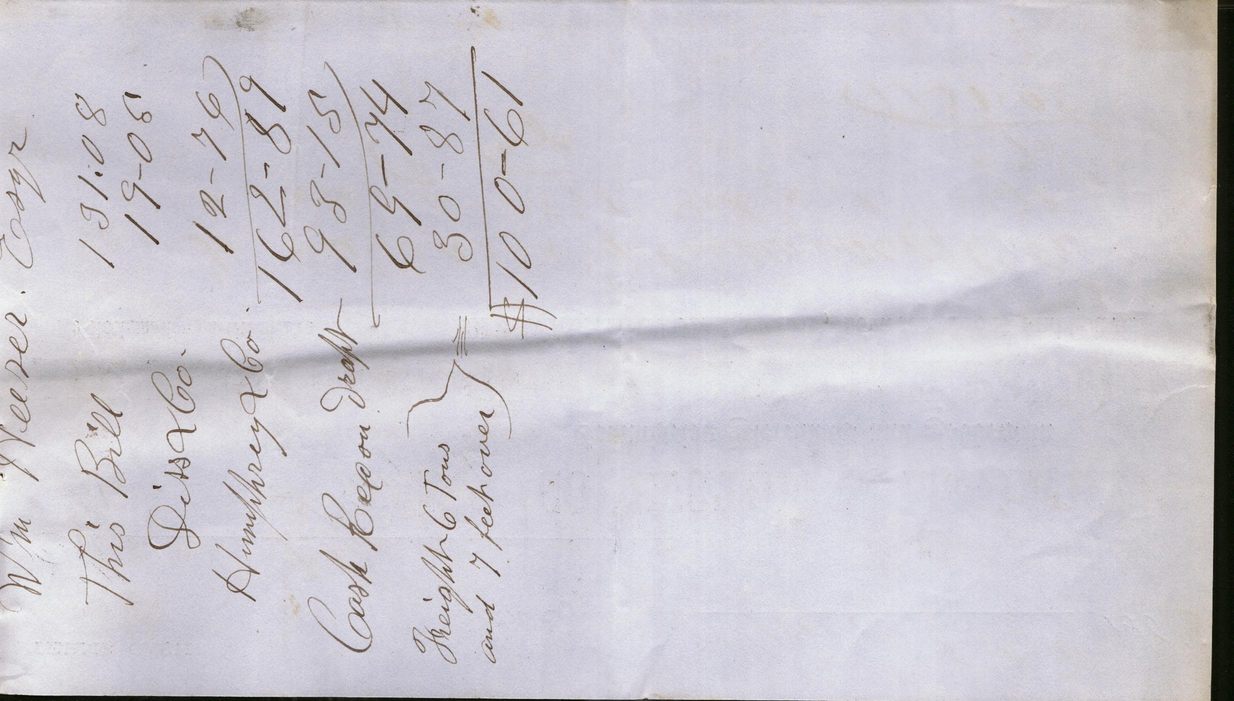 Wm Esqr
This Bill 131.08
& Co. 19-05
Humphrey & Co. 12-76
162-89
Cash Rec on draft 93-15
69-74
Freight 6 Tons
and 7 feet over } = 30-87
$100-61